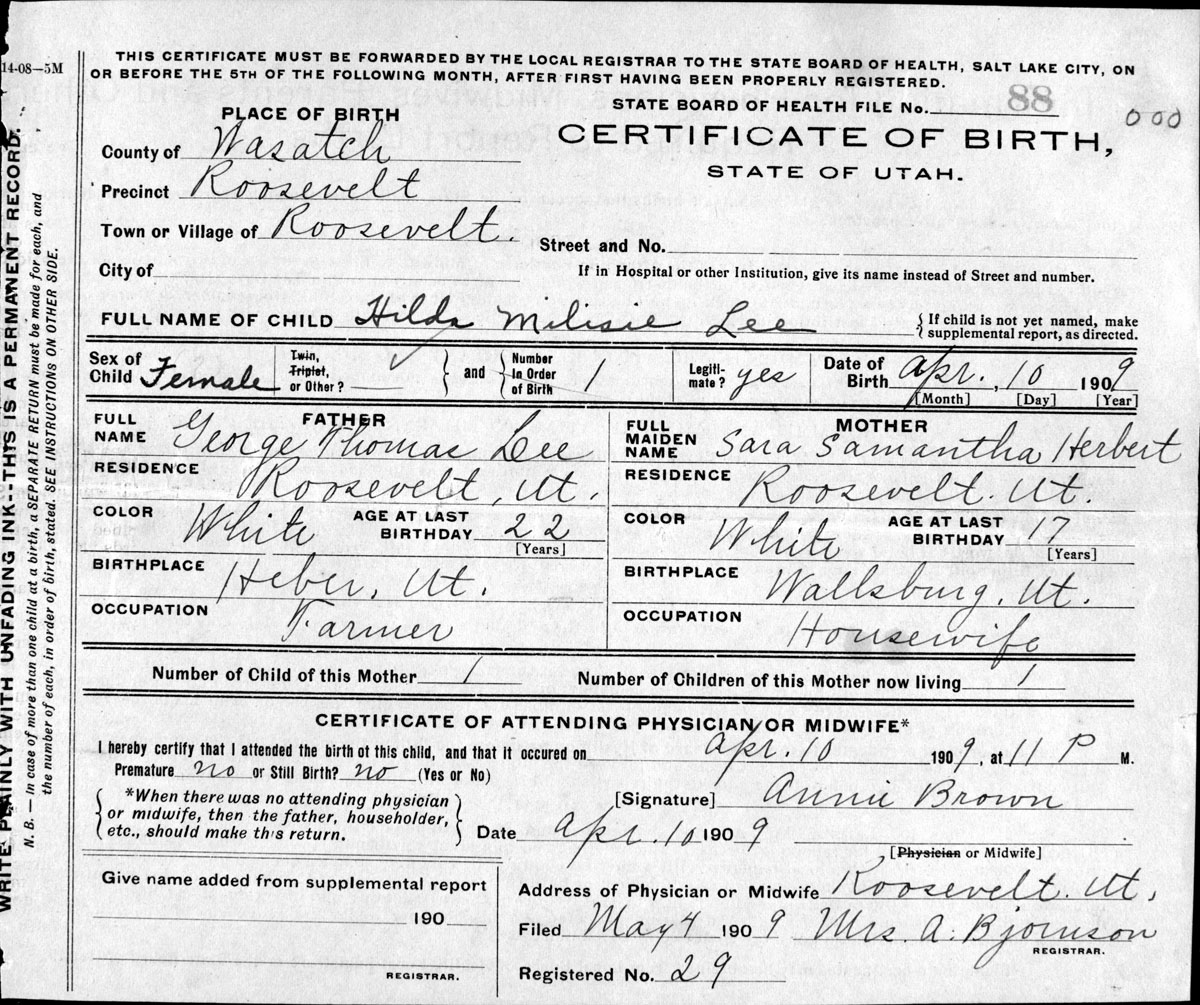 14-08—5M
THIS CERTIFICATE MUST BE FORWARDED BY THE LOCAL REGISTRAR TO THE STATE BOARD OF HEALTH, SALT LAKE CITY, ON
OR BEFORE THE 5TH OF THE FOLLOWING MONTH, AFTER FIRST HAVING BEEN PROPERLY REGISTERED.
STATE BOARD OF HEALTH FILE No. 88
000
PLACE OF BIRTH
CERTIFICATE OF BIRTH,
STATE OF UTAH.
County of Wasatch
Precinct Roosevelt
Town or Village of Roosevelt.
Street and No.
City of
If in Hospital or other Institution, give its name instead of Street and number.
FULL NAME OF CHILD Hilda Milisie Lee
If child is not yet named, make
supplemental report, as directed.
Sex of
Child Female
Twin,
Triplet,
or Other?
and
Number
In Order
of Birth 1
Legiti-
mate? yes
Date of
Birth Apr. 10 1909
[Month] [Day] [Year]
FATHER
FULL
NAME George Thomas Lee
RESIDENCE Roosevelt, Ut.
COLOR White
AGE AT LAST
BIRTHDAY 22
[Years]
BIRTHPLACE Heber, Ut.
OCCUPATION Farmer
MOTHER
FULL
MAIDEN
NAME Sara Samantha Herbert
RESIDENCE Roosevelt. Ut.
COLOR White
AGE AT LAST
BIRTHDAY 17
[Years]
BIRTHPLACE Wallsburg, Ut.
OCCUPATION Housewife
Number of Child of this Mother 1
Number of Children of this Mother now living 1
CERTIFICATE OF ATTENDING PHYSICIAN OR MIDWIFE*
I hereby certify that I attended the birth of this child, and that it occured on Apr. 10 1909, at 11 P M.
Premature no or Still Birth? no (Yes or No)
*When there was no attending physician
or midwife, then the father, householder,
etc., should make this return.
[Signature] Annie Brown
Date Apr. 10 1909
[Physician or Midwife]
Give name added from supplemental report
190
REGISTRAR.
Address of Physician or Midwife Roosevelt. Ut.
Filed May 4 1909 Mrs. A. Bjornson
REGISTRAR.
Registered No. 29
WRITE PLAINLY WITH UNFADING INK---THIS IS A PERMANENT RECORD.
N. B. — In case of more than one child at a birth, a SEPARATE RETURN must be made for each, and
the number of each, in order of birth, stated. SEE INSTRUCTIONS ON OTHER SIDE.